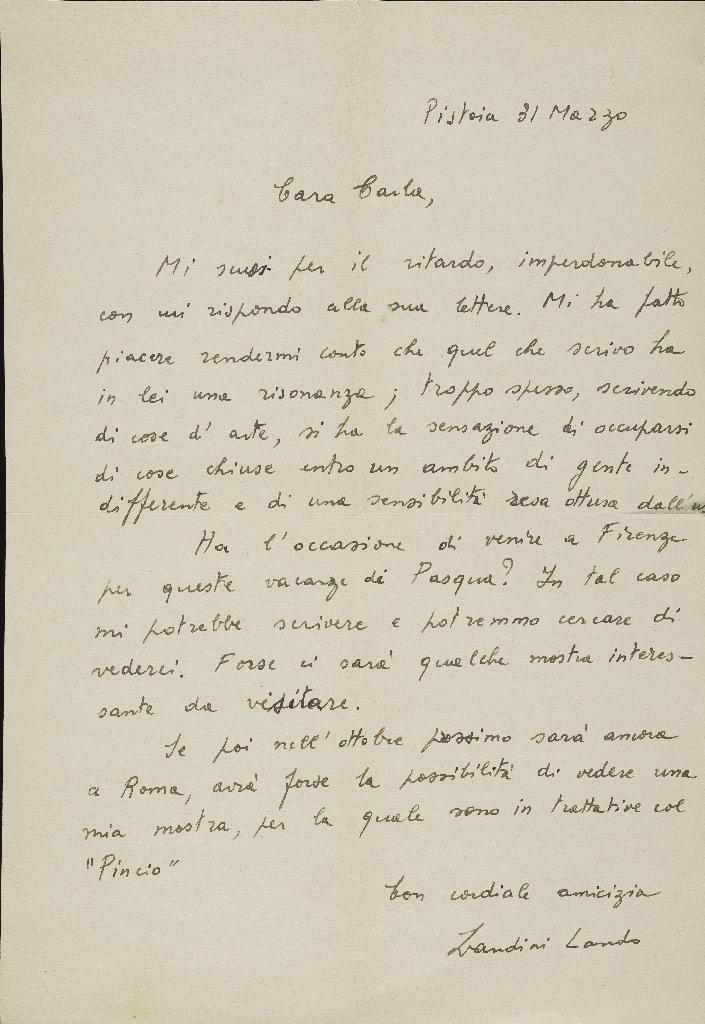 Pistoia 31 Marzo
Cara Carla,
Mi scusi per il ritardo, imperdonabile,
con cui rispondo alla sua lettera. Mi ha fatto
piacere rendermi conto che quel che scrivo ha
in lei una risonanza; troppo spesso, scrivendo
di cose d'arte, si ha la sensazione di occuparsi
di cose chiuse entro un ambito di gente in-
differente e di una sensibilità resa ottusa dall'u
Ha l'occasione di venire a Firenze
per queste vacanze di Pasqua? In tal caso
mi potrebbe scrivere e potremmo cercare di
vederci. Forse ci sarà qualche mostra interes-
sante da visitare.
Se poi nell'ottobre prossimo sarà ancora
a Roma, avrà forse la possibilità di vedere una
mia mostra, per la quale sono in trattative col
"Pincio"
Con cordiale amicizia
Landini Lando